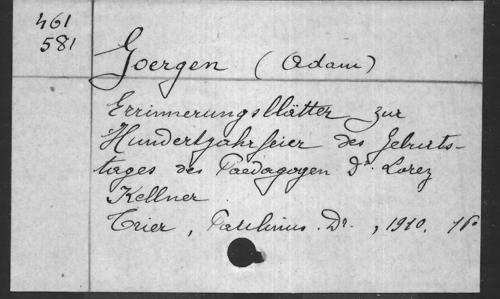 461
581
Goergen (Adam)
Errinnerungsblätter zur
Hundertjahrfeier des Geburts-
tages des Paedagogen Dr. Lorez
Kellner
Trier, Paulinus. Dr., 1910.